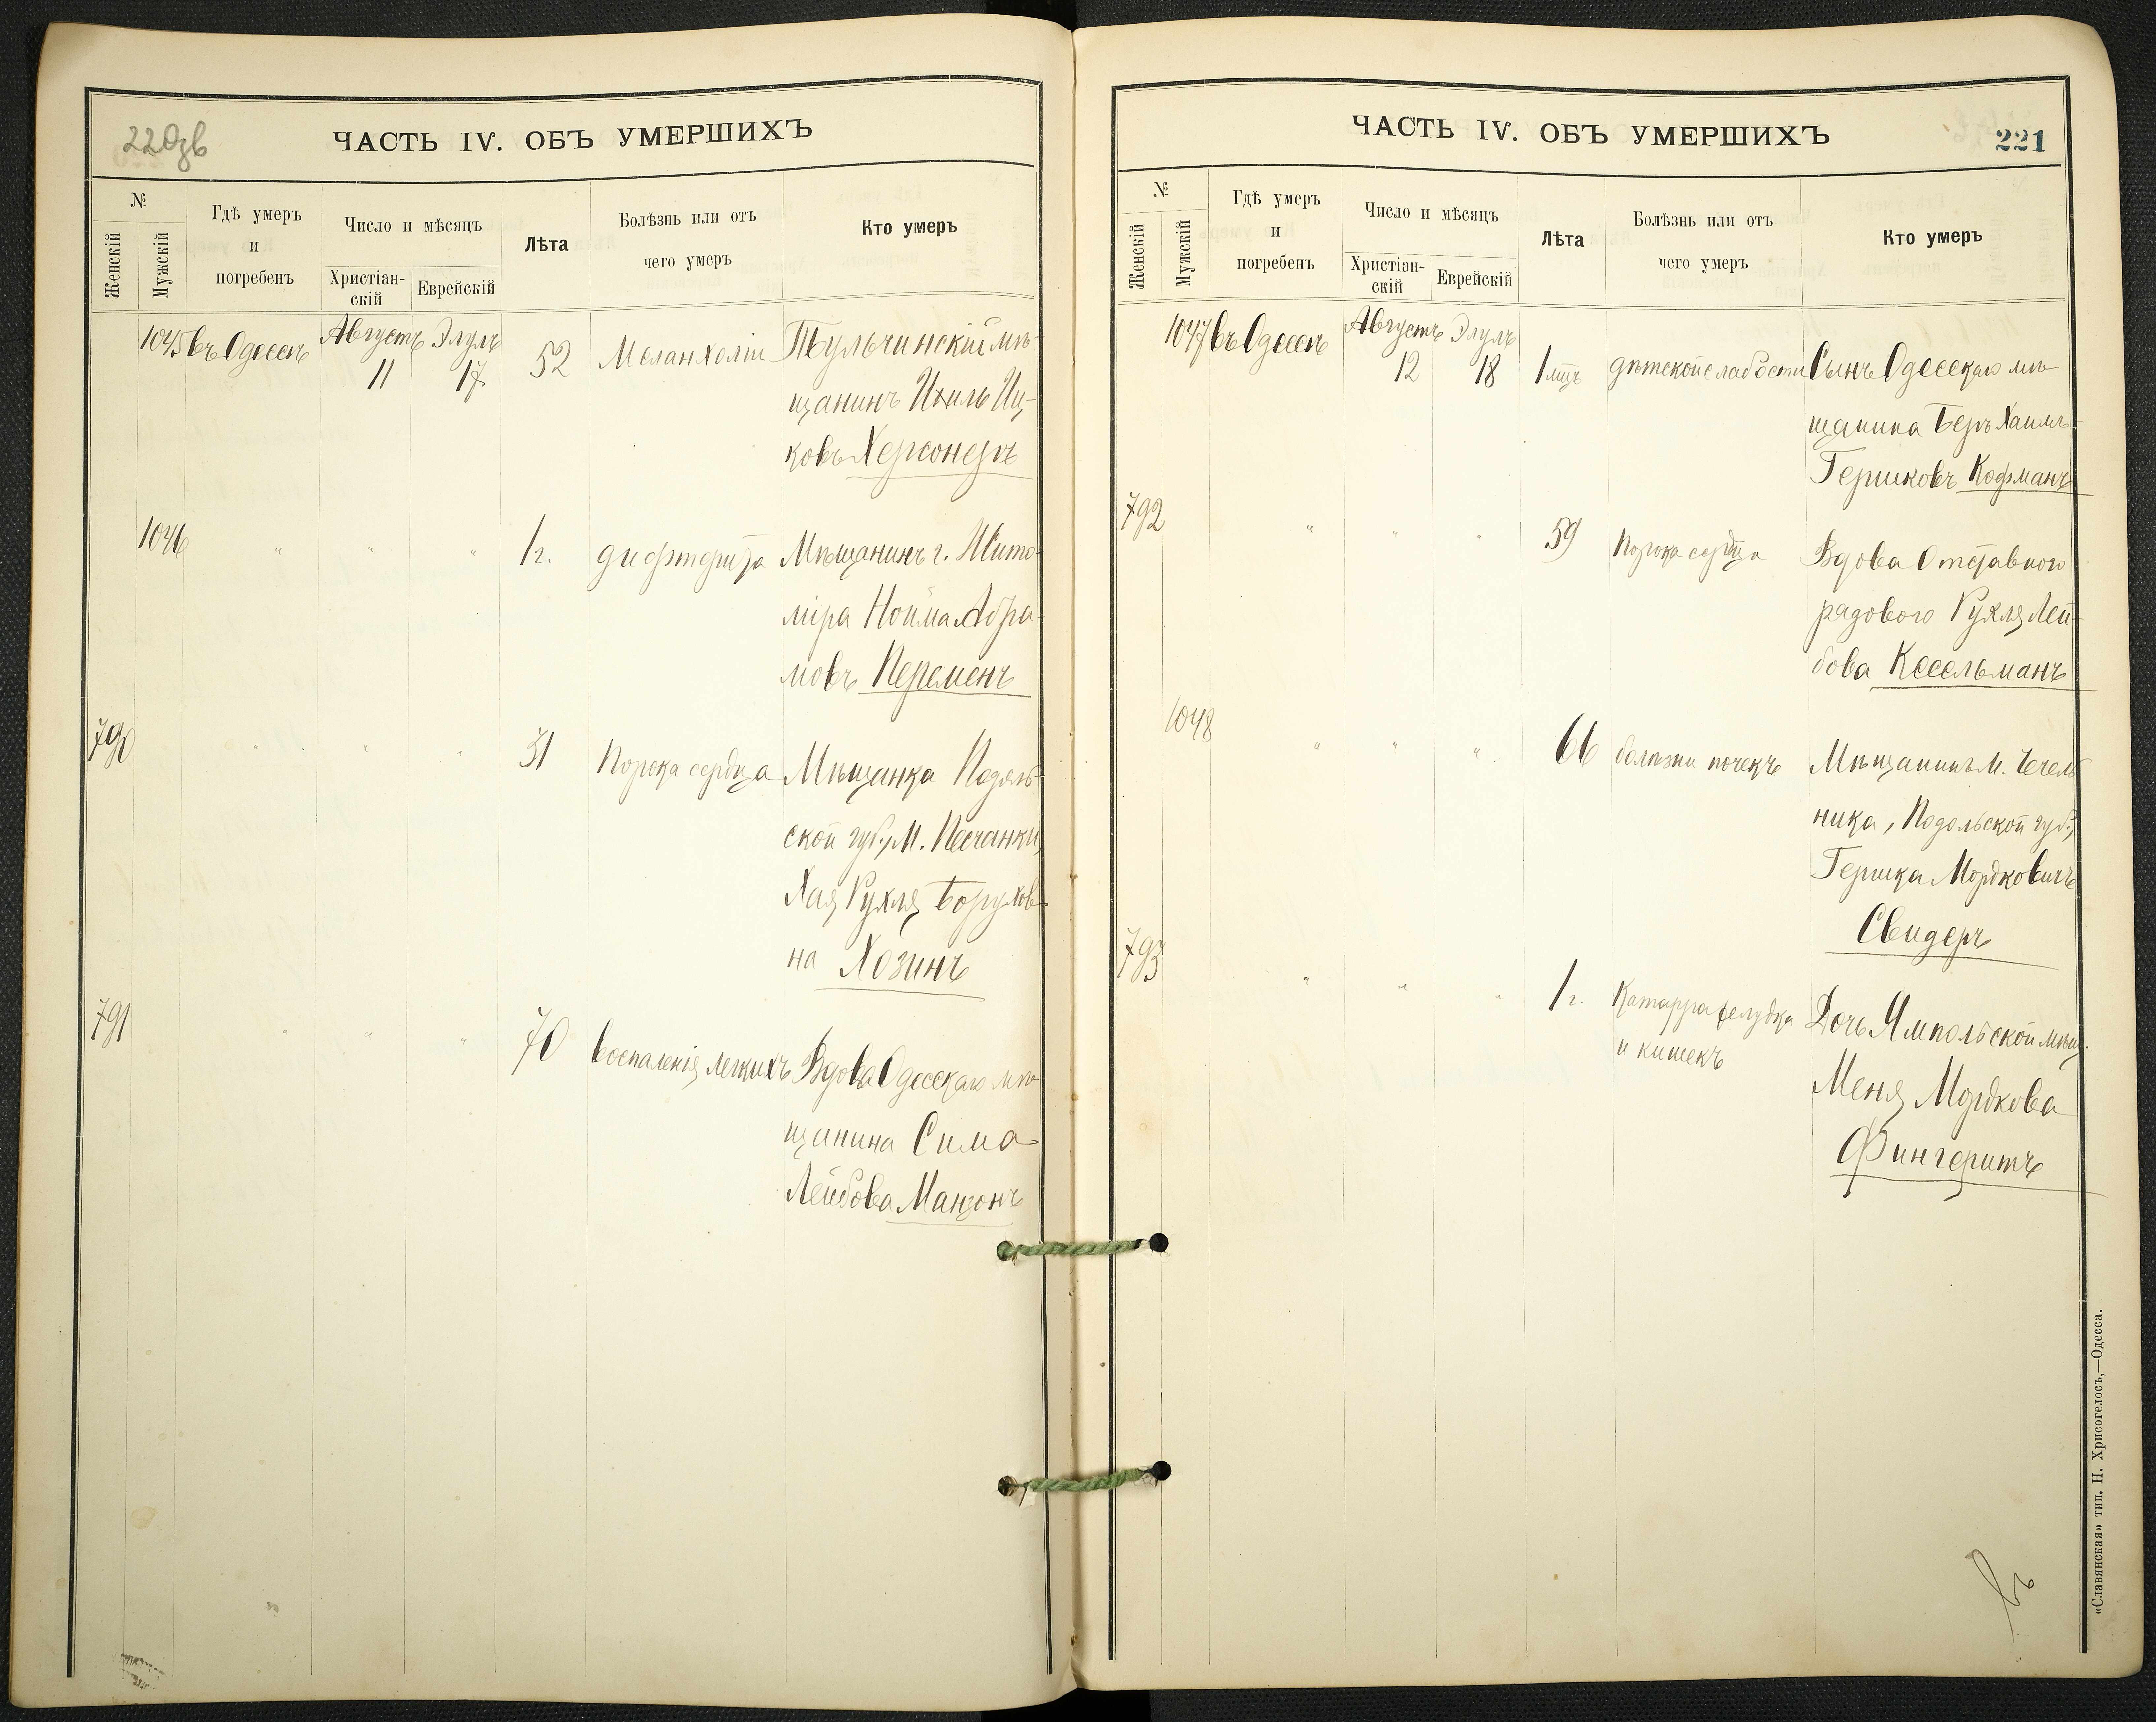 220зв
ЧАСТЬ IV. ОБЪ УМЕРШИХЪ
№
Женскій
Мужскій
Гдѣ умеръ
и
погребенъ
Число и мѣсяцъ
Христіан-
скій
Еврейскій
Лѣта
Болѣзнь или отъ
чего умеръ
Кто умеръ
1045 въ Одессѣ Августъ 11 Элулъ 17 52 Меланхоліи Тульчинскій мѣ-
щанинъ Ихиль Иц-
ковъ Херсонеръ
1046 " " " 1 г. дифтерита Мѣщанинъ г. Жито-
міра Нойма Абра-
мовъ Переменъ
790 " " " 31 Порока сердца Мѣщанка Подоль-
ской губ., М. Песчанки,
Хая Рухля Борухов-
на Хозинъ
791 " " " 70 воспаленія легкихъ Вдова Одесскаго мѣ-
щанина Сима
Лейбова Манзонъ
ЧАСТЬ IV. ОБЪ УМЕРШИХЪ
221
№
Женскій
Мужскій
Гдѣ умеръ
и
погребенъ
Число и мѣсяцъ
Христіан-
скій
Еврейскій
Лѣта
Болѣзнь или отъ
чего умеръ
Кто умеръ
1047 въ Одессѣ Августъ 12 Элулъ 18 1 мц дѣтской слабости Сынъ Одесскаго мѣ-
щанина Беръ Хаимъ
Гершковъ Кофманъ
792 " " " 59 Порока сердца Вдова Отставного
рядового Рухля Лей-
бова Кесельманъ
1048 " " " 66 болѣзни почекъ Мѣщанинъ М. Чечель-
ника, Подольской губ.,
Гершка Мордковичъ
Свидеръ
793 " " " 1 г. Катарра желудка Дочь Ямпольской мѣщ.
и кишекъ
Меня Мордкова
Фингеритъ
«Славянская» тип. Н. Хрисогелосъ,—Одесса.